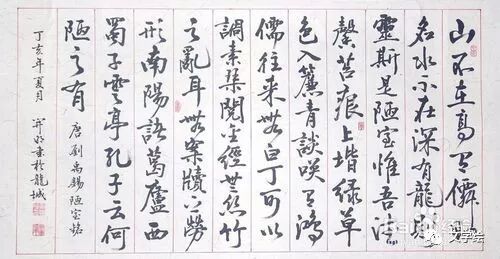 山不在高有僊則
名水不在深有龍則
靈斯是陋室惟吾德
馨苔痕上堦綠草
色入簾青談咲有鴻
儒往來無白丁可以
調素琴閱金經無絲竹
之亂耳無案牘之勞
形南陽諸葛廬西
蜀子雲亭孔子云何
陋之有 唐劉禹錫陋室銘
丁亥年夏月 書於龍城
文学会